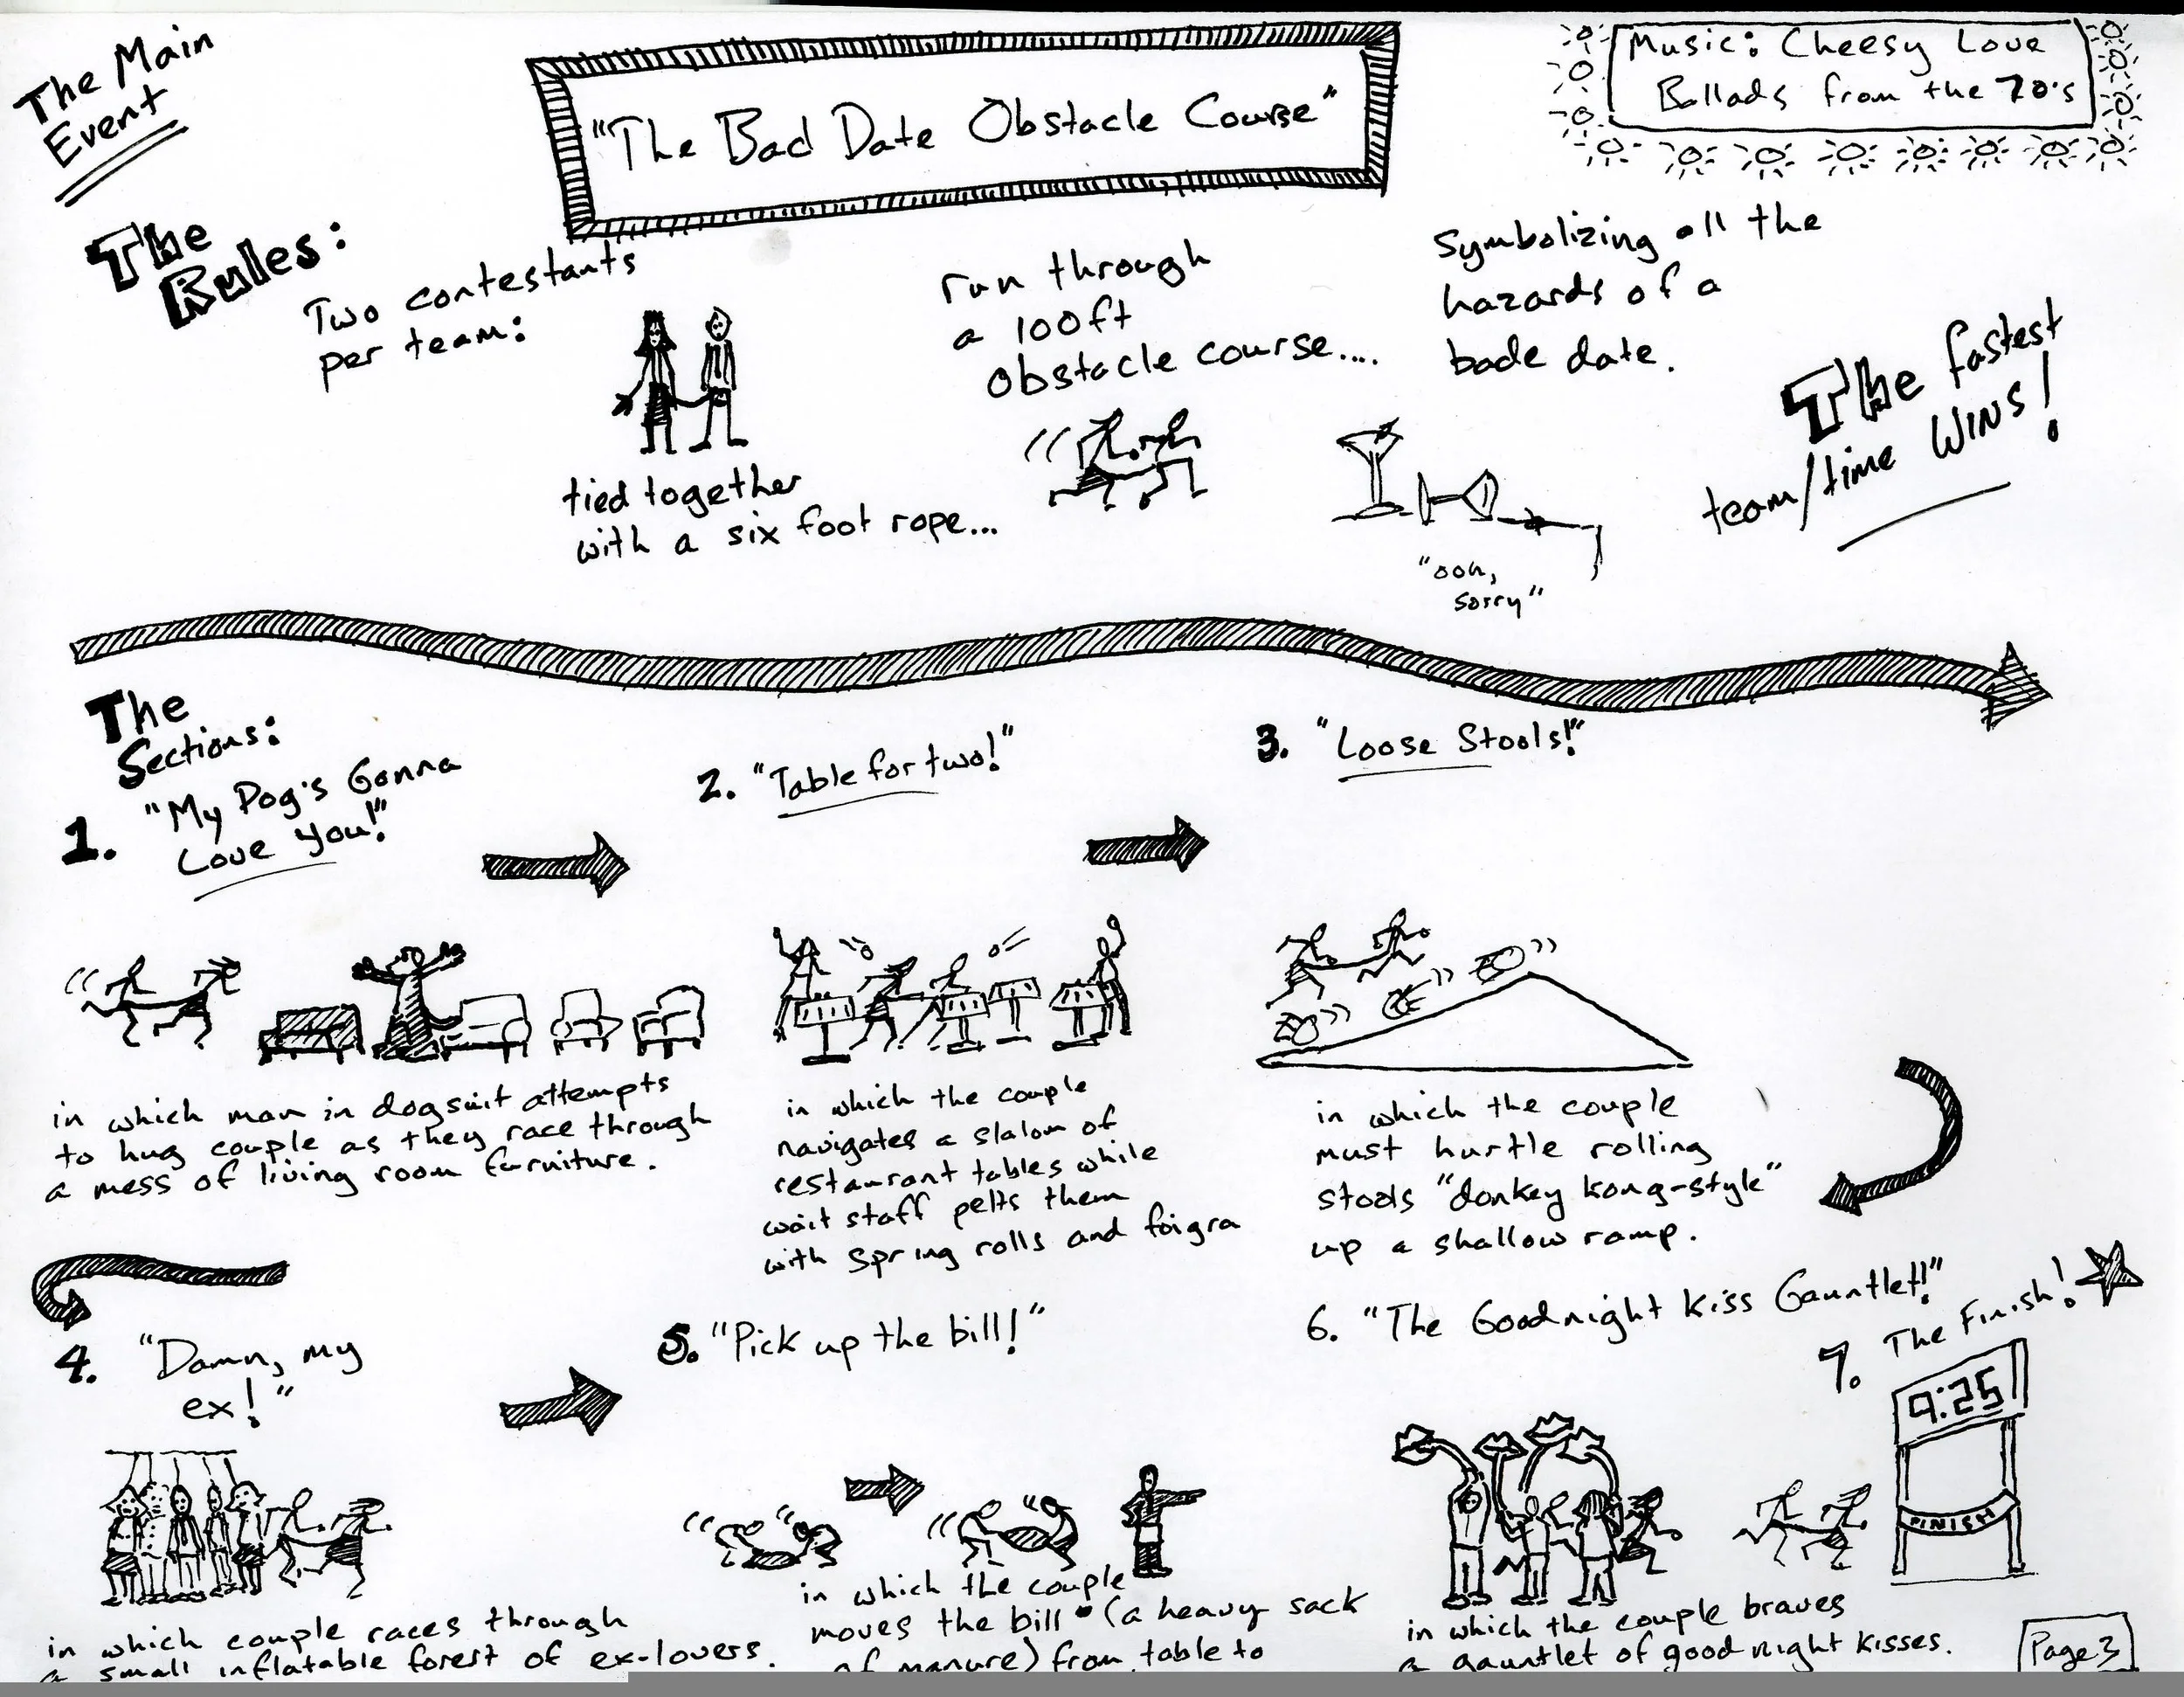 The Main
Event
"The Bad Date Obstacle Course"
Music: Cheesy Love
Ballads from the 70's
The
Rules:
Two contestants
per team:
tied together
with a six foot rope...
run through
a 100ft
obstacle course....
Symbolizing all the
hazards of a
bade date.
"ooh,
sorry"
The fastest
team/time WINS!
The
Sections:
1. "My Dog's Gonna
Love you!"
in which man in dogsuit attempts
to hug couple as they race through
a mess of living room furniture.
2. "Table for two!"
in which the couple
navigates a slalom of
restaurant tables while
wait staff pelts them
with spring rolls and foigra
3. "Loose Stools!"
in which the couple
must hurtle rolling
stools "donkey kong-style"
up a shallow ramp.
4. "Damn, my
ex!"
in which couple races through
a small inflatable forest of ex-lovers.
5. "Pick up the bill!"
in which the couple
moves the bill (a heavy sack
of manure) from table to
6. "The Goodnight Kiss Gauntlet!"
in which the couple braves
a gauntlet of good night kisses.
7. The Finish!
9:25
FINISH
Page 3